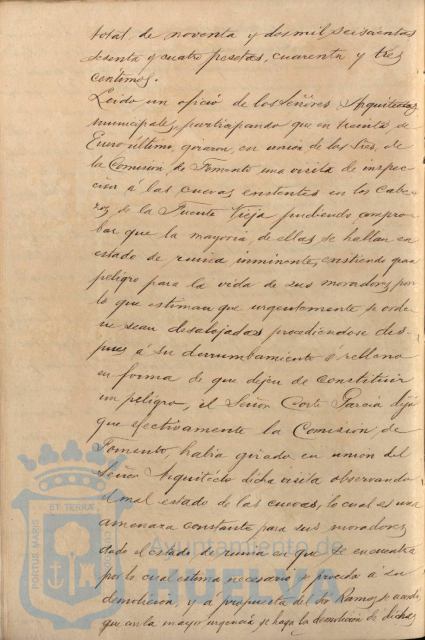 total de noventa y dos mil seiscientas
sesenta y cuatro pesetas, cuarenta y tres
céntimos.
Leido un oficio de los Señores Arquitectos
municipales, participando que en treinta de
Enero último, giraron, en unión de los Sres. de
la Comisión de Fomento una visita de inspec-
cion á las cuevas existentes en los Cabe-
zos de la Fuente Vieja pudiendo compro-
bar que la mayoria de ellas se hallan en
estado de ruina inminente, existiendo gran
peligro para la vida de sus moradores por
lo que estiman que urgentemente se orde-
ne sean desalojadas procediendose des-
pues á su derrumbamiento ó relleno
en forma de que dejen de constituir
un peligro, el Señor Corte Garcia dijo
que efectivamente la Comision de
Fomento, habia girado en union del
Señor Arquitecto dicha visita observando
el mal estado de las cuevas, lo cual es una
amenaza constante para sus moradores,
dado el estado de ruina en que se encuentra
por lo cual estima necesario se proceda á su
demolicion, y á propuesta del Sor. Ramos se acordó
que con la mayor urgencia se haga la demolición de dichas
PORTUS MARIS ET TERRAE CUSTODIA
Ayuntamiento de
HUELVA